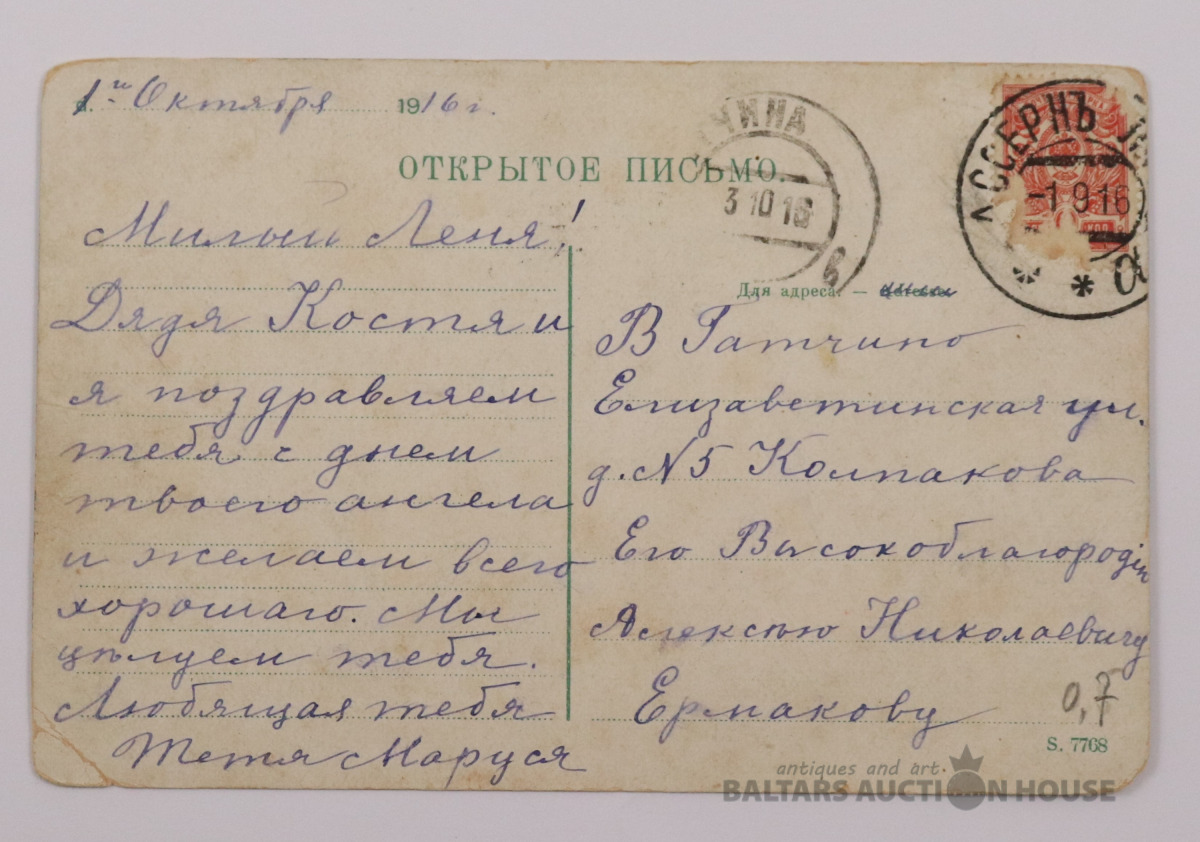 1го Октября 1916 г.
ОТКРЫТОЕ ПИСЬМО.
ЧИНА
3 10 16
в
АССЕРНЪ
-1 9 16
* * а
Милый Леня!
Дядя Костя и
я поздравляем
тебя с днем
твоего ангела
и желаем всего
хорошаго. Мы
цѣлуем тебя.
Любящая тебя
Тетя Маруся
Для адреса. —
В Гатчино
Елизаветинская ул.
д. №5 Колпакова
Его Высокоблагородію
Алексѣю Николаевичу
Ермакову
0,7
S. 7768
antiques and art.
BALTARS AUCTION HOUSE